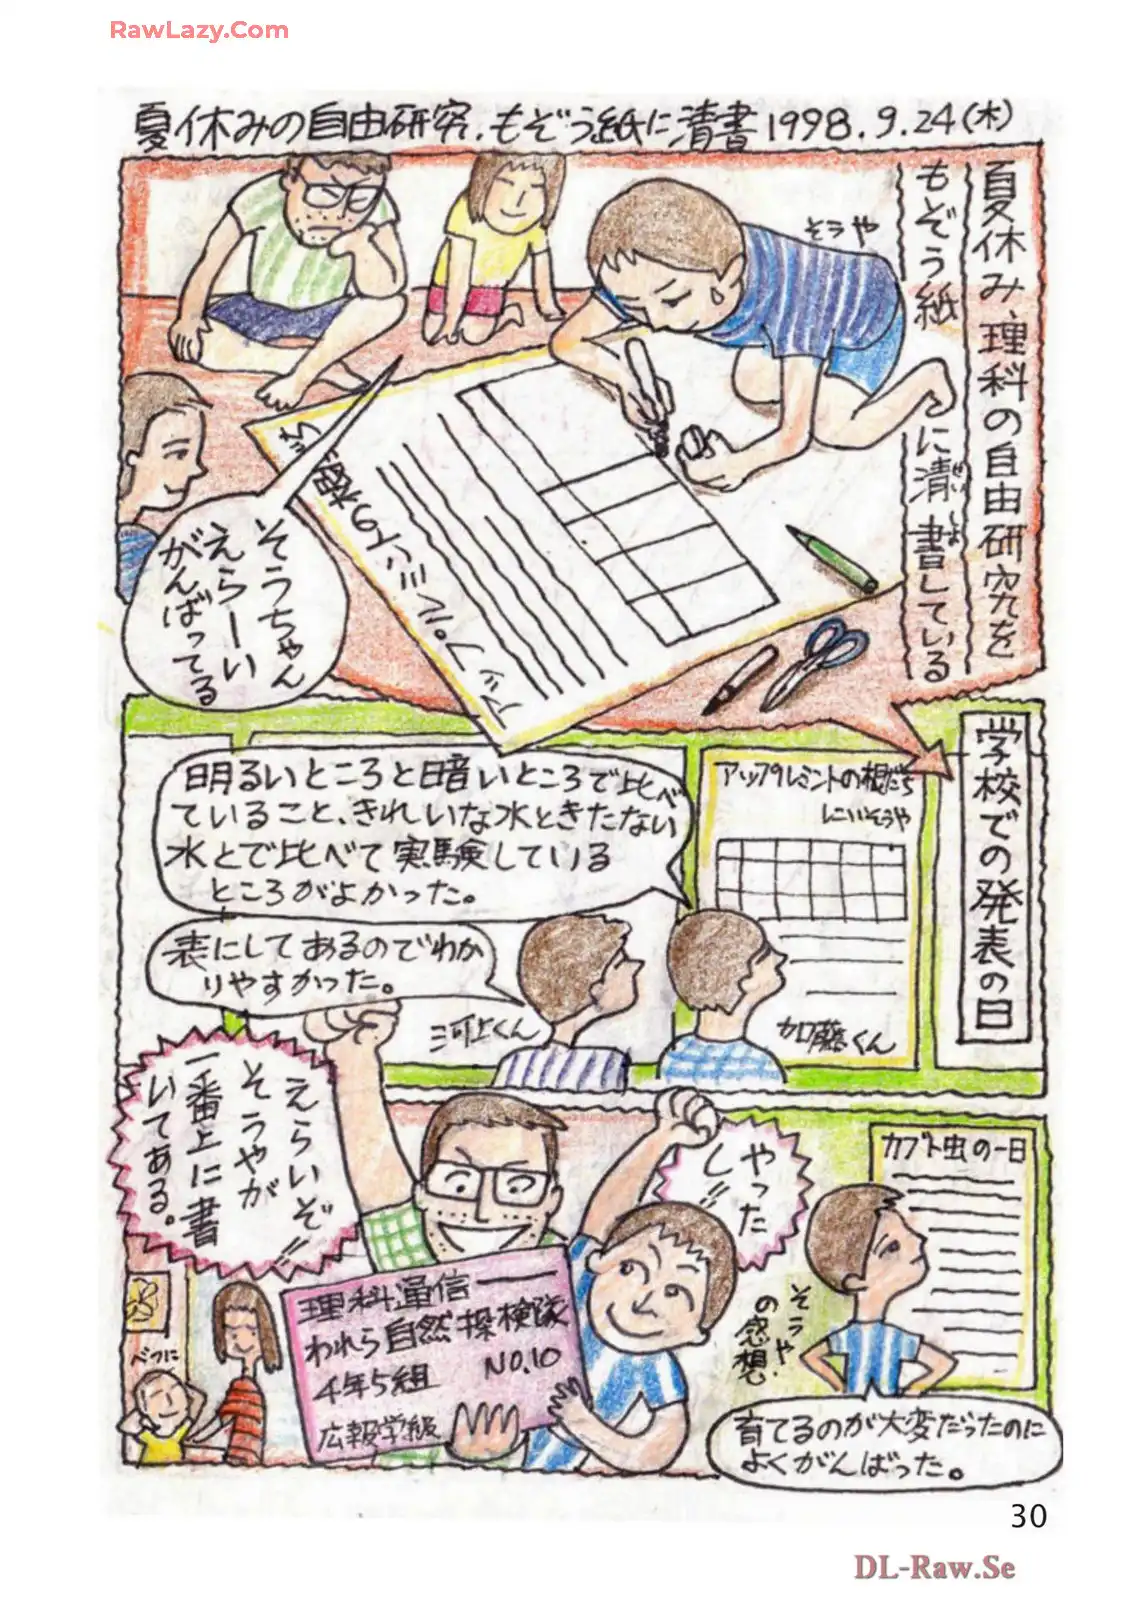 RawLazy.Com
夏休みの自由研究.もぞう紙に清書1998.9.24(木)
夏休み理科の自由研究を
もぞう紙に清書している
せいしょ
そうや
アップルミントの根だち
そうちゃん
えらーい
がんばってる
学校での発表の日
アップルミントの根だち
にいいそうや
明るいところと暗いところで比べ
ていること、きれいな水ときたない
水とで比べて実験している
ところがよかった。
加藤くん
表にしてあるのでわか
りやすかった。
河上くん
えらいぞ!!
そうやが
一番上に書
いてある。
やった
し!!
理科通信
われら自然探検隊
4年5組 NO.10
広報学級
べつに
カブト虫の一日
そうや.
の感想
育てるのが大変だったのに
よくがんばった。
30
DL-Raw.Se